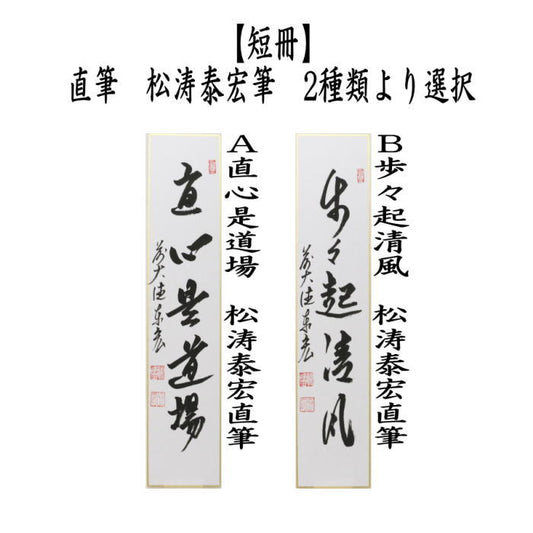 【短冊】
直筆　松涛泰宏筆　2種類より選択
A直心是道場　松涛泰宏直筆
直心是道場
B歩々起清風　松涛泰宏直筆
歩々起清風